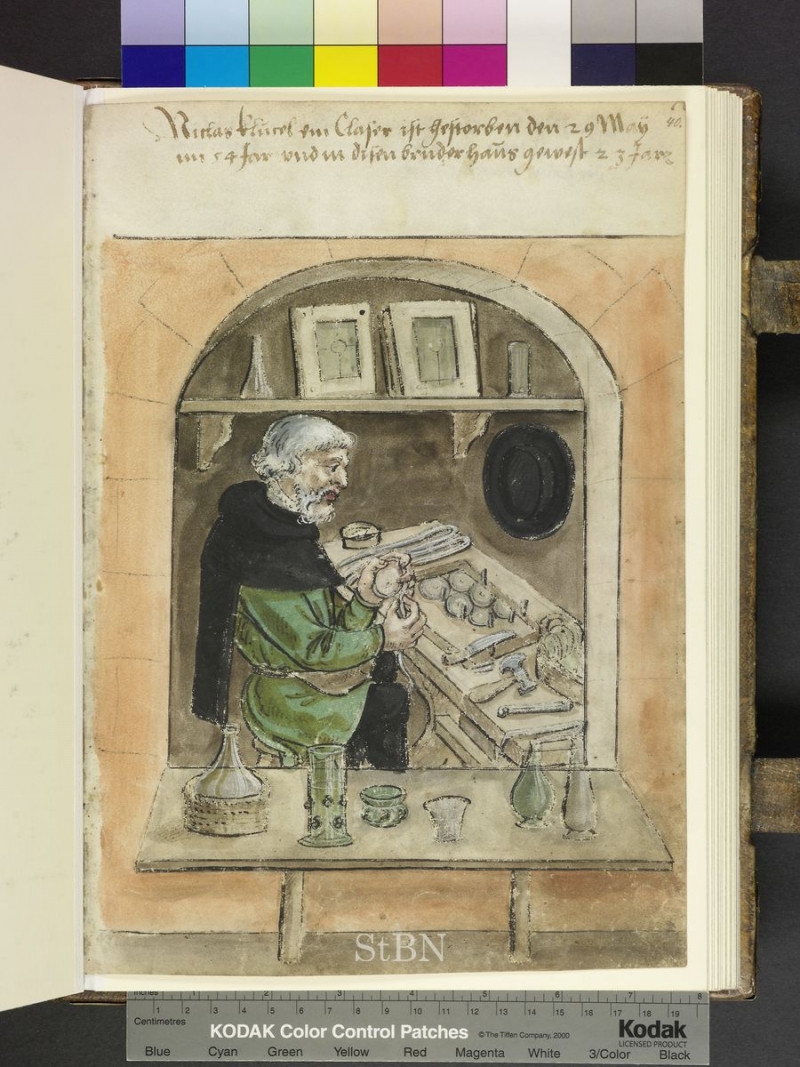 40.
Niclas Klucel ein Glaser ist gestorben den 29 May
im 54 Jar und in disen bruderhaus gewest 23 Jare
StBN
Inches 1 2 3 4 5 6 7 8
Centimetres 1 2 3 4 5 6 7 8 9 10 11 12 13 14 15 16 17 18 19
KODAK Color Control Patches © The Tiffen Company, 2000 Kodak
LICENSED PRODUCT
Blue Cyan Green Yellow Red Magenta White 3/Color Black